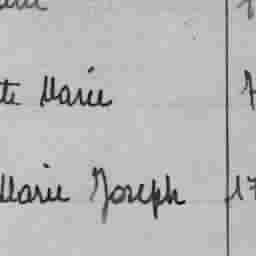 te Marie 7
Marie Joseph 17